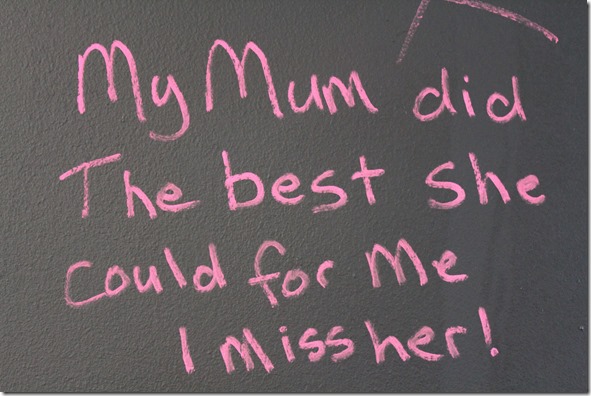 My Mum did
The best she
could for Me
I miss her!